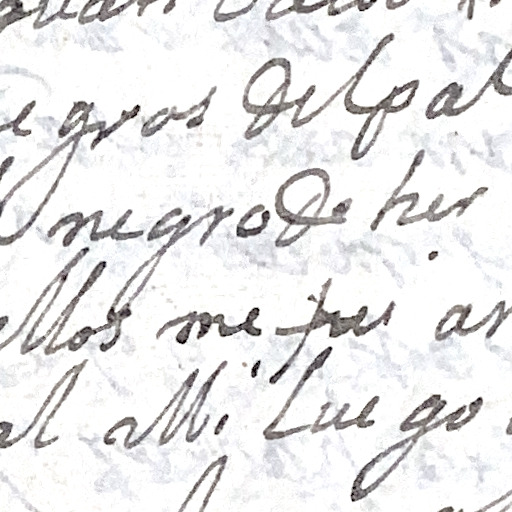 egros del pal
negro de her
ellos me fue an
al Mi Luego